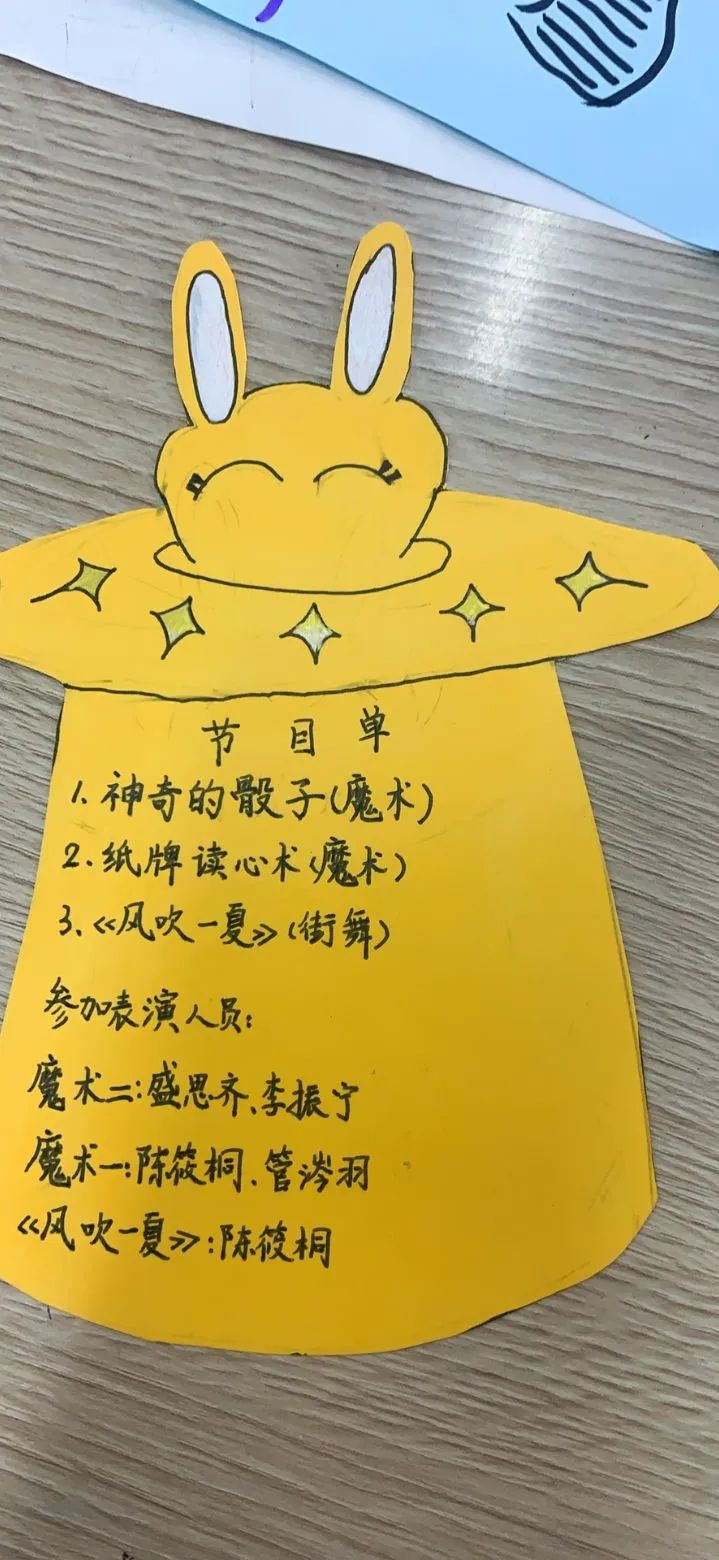 节目单
1. 神奇的骰子(魔术)
2. 纸牌读心术(魔术)
3.《风吹一夏》(街舞)
参加表演人员:
魔术二:盛思齐、李振宁
魔术一:陈筱桐、管涔羽
《风吹一夏》:陈筱桐